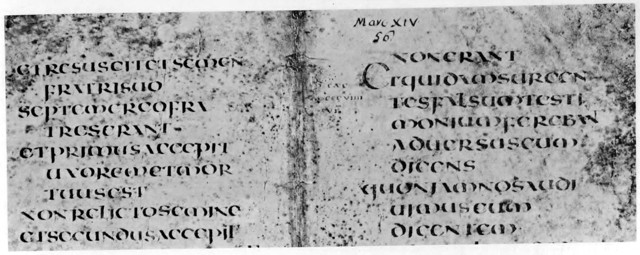 ETRESUSCITETSEMEN
FRATRISUO
SEPTEMERGOFRA
TRESERANT·
ETPRIMUSACCEPIT
UXOREMETMOR
TUUSEST
NONRELICTOSEMINE
ETSECUNDUSACCEPIT
Marc XIV
56
NONERANT
ETQUIDAMSURGEN
TESFALSUMTESTI
MONIUMFEREBAN
ADUERSUSEUM
DICENS
QUONIAMNOSAUDI
UIMUSEUM
DICENTEM